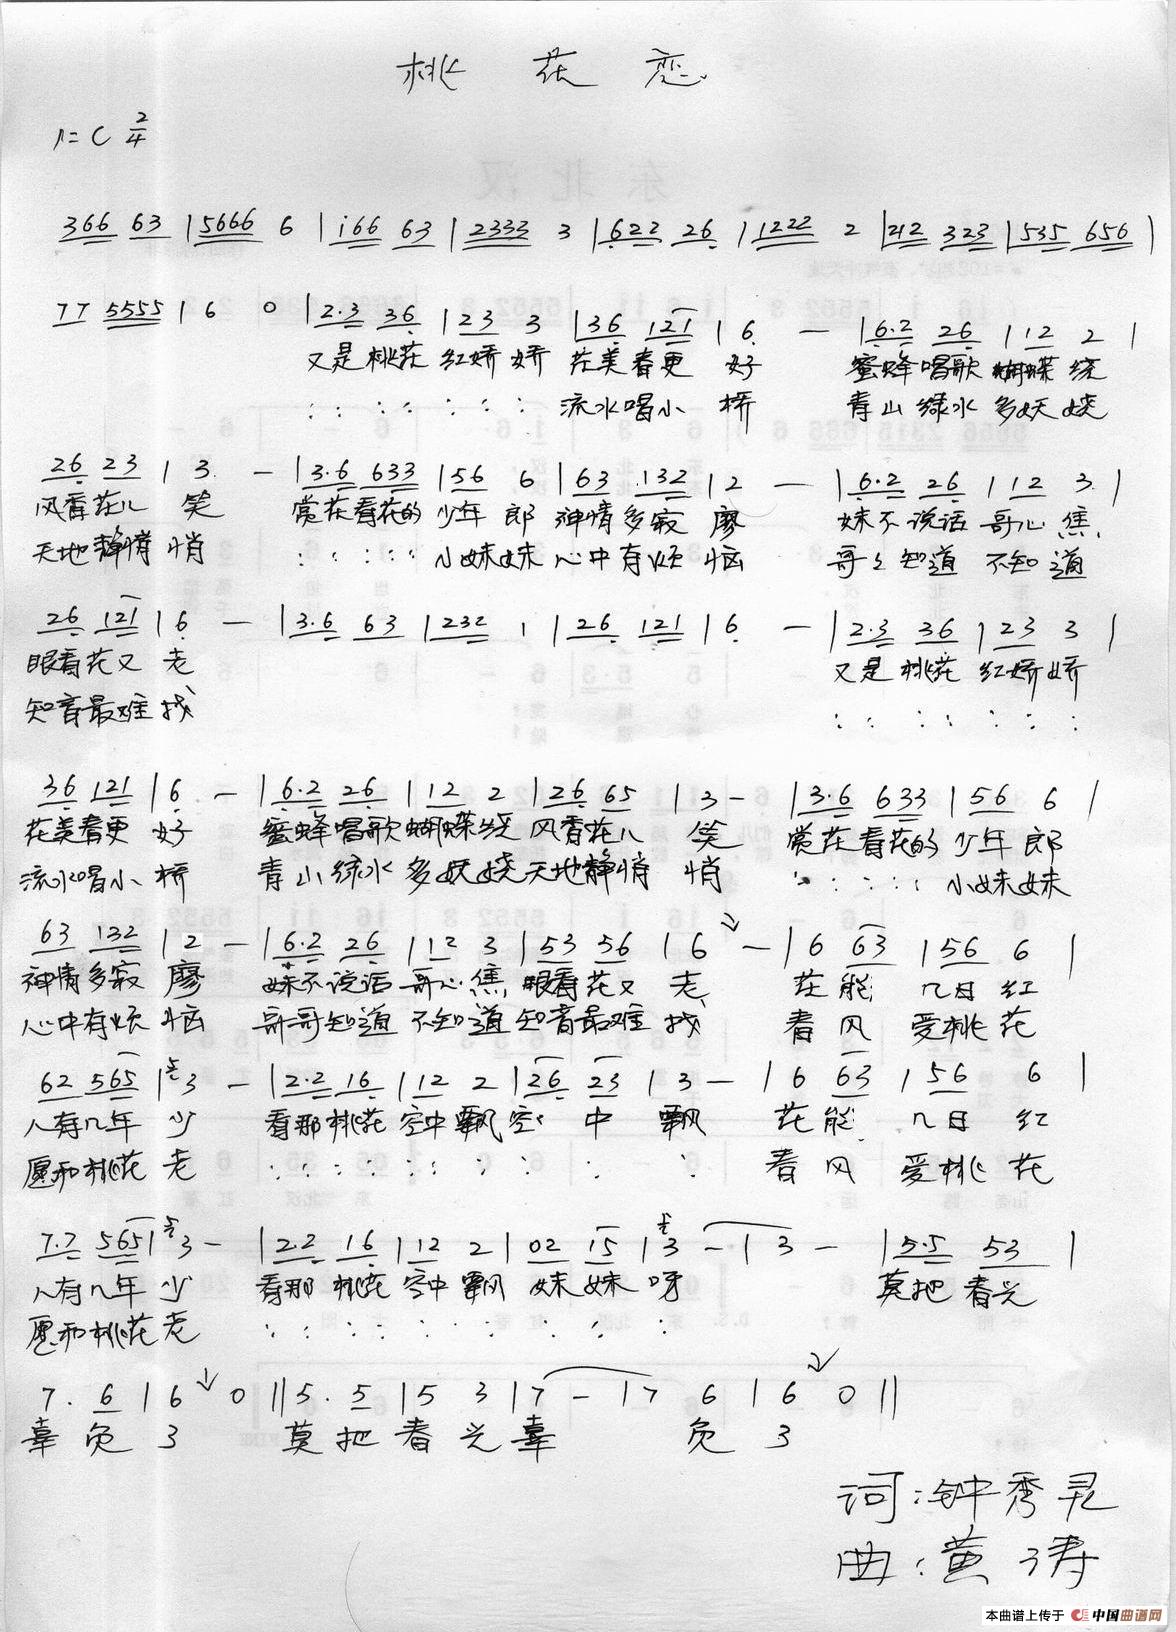 桃 花 恋
1=C 2/4
366 63 | 5666 6 | i66 63 | 2333 3 | 622 26 | 1222 2 | 212 323 | 535 656 |
77 5555 | 6 0 | 2·3 36 | 23 3 | 36 121 | 6 — | 6·2 26 | 12 2 |
又是桃花 红娇娇 花美春更 好 蜜蜂唱歌 蝴蝶绕
: : : : : : : 流水唱小 桥 青山绿水 多妖娆
26 23 | 3 — | 3·6 633 | 56 6 | 63 132 | 2 — | 6·2 26 | 12 3 |
风香花儿 笑 赏花看花的 少年郎 神情多寂 廖 妹不说话 哥心焦
天地静悄 悄 : : : : : 小妹妹 心中有烦 恼 哥々知道 不知道
26 121 | 6 — | 3·6 63 | 232 1 | 26 121 | 6 — | 2·3 36 | 23 3 |
眼看花又 老 又是桃花 红娇娇
知音最难 找 : : : : : : :
36 121 | 6 — | 6·2 26 | 12 2 | 26 65 | 3 — | 3·6 633 | 56 6 |
花美春更 好 蜜蜂唱歌 蝴蝶绕 风香花儿 笑 赏花看花的 少年郎
流水唱小 桥 青山绿水 多妖娆 天地静悄 悄 : : : : : 小妹妹
63 132 | 2 — | 6·2 26 | 12 3 | 53 56 | 6 — | 6 63 | 56 6 |
神情多寂 廖 妹不说话 哥心焦 眼看花又 老 花能 几日红
心中有烦 恼 哥哥知道 不知道 知音最难 找 春风 爱桃花
62 565 | 3 — | 2·2 16 | 12 2 | 26 23 | 3 — | 6 63 | 56 6 |
人有几年 少 看那桃花 空中飘 空中 飘 花能 几日红
愿和桃花 老 : : : : : : : : : : 春风 爱桃花
7·7 565 | 3 — | 2·2 16 | 12 2 | 02 15 | 3 — | 3 — | 5·5 53 |
人有几年 少 看那桃花 空中飘 妹妹 呀 莫把春光
愿和桃花 老 : : : : : : : : : :
7· 6 | 6 0 || 5· 5 | 5 3 | 7 — | 7 6 | 6 0 ||
辜 负 了 莫 把 春 光 辜 负 了
词:钟秀灵
曲:黄涛
本曲谱上传于 中国曲谱网